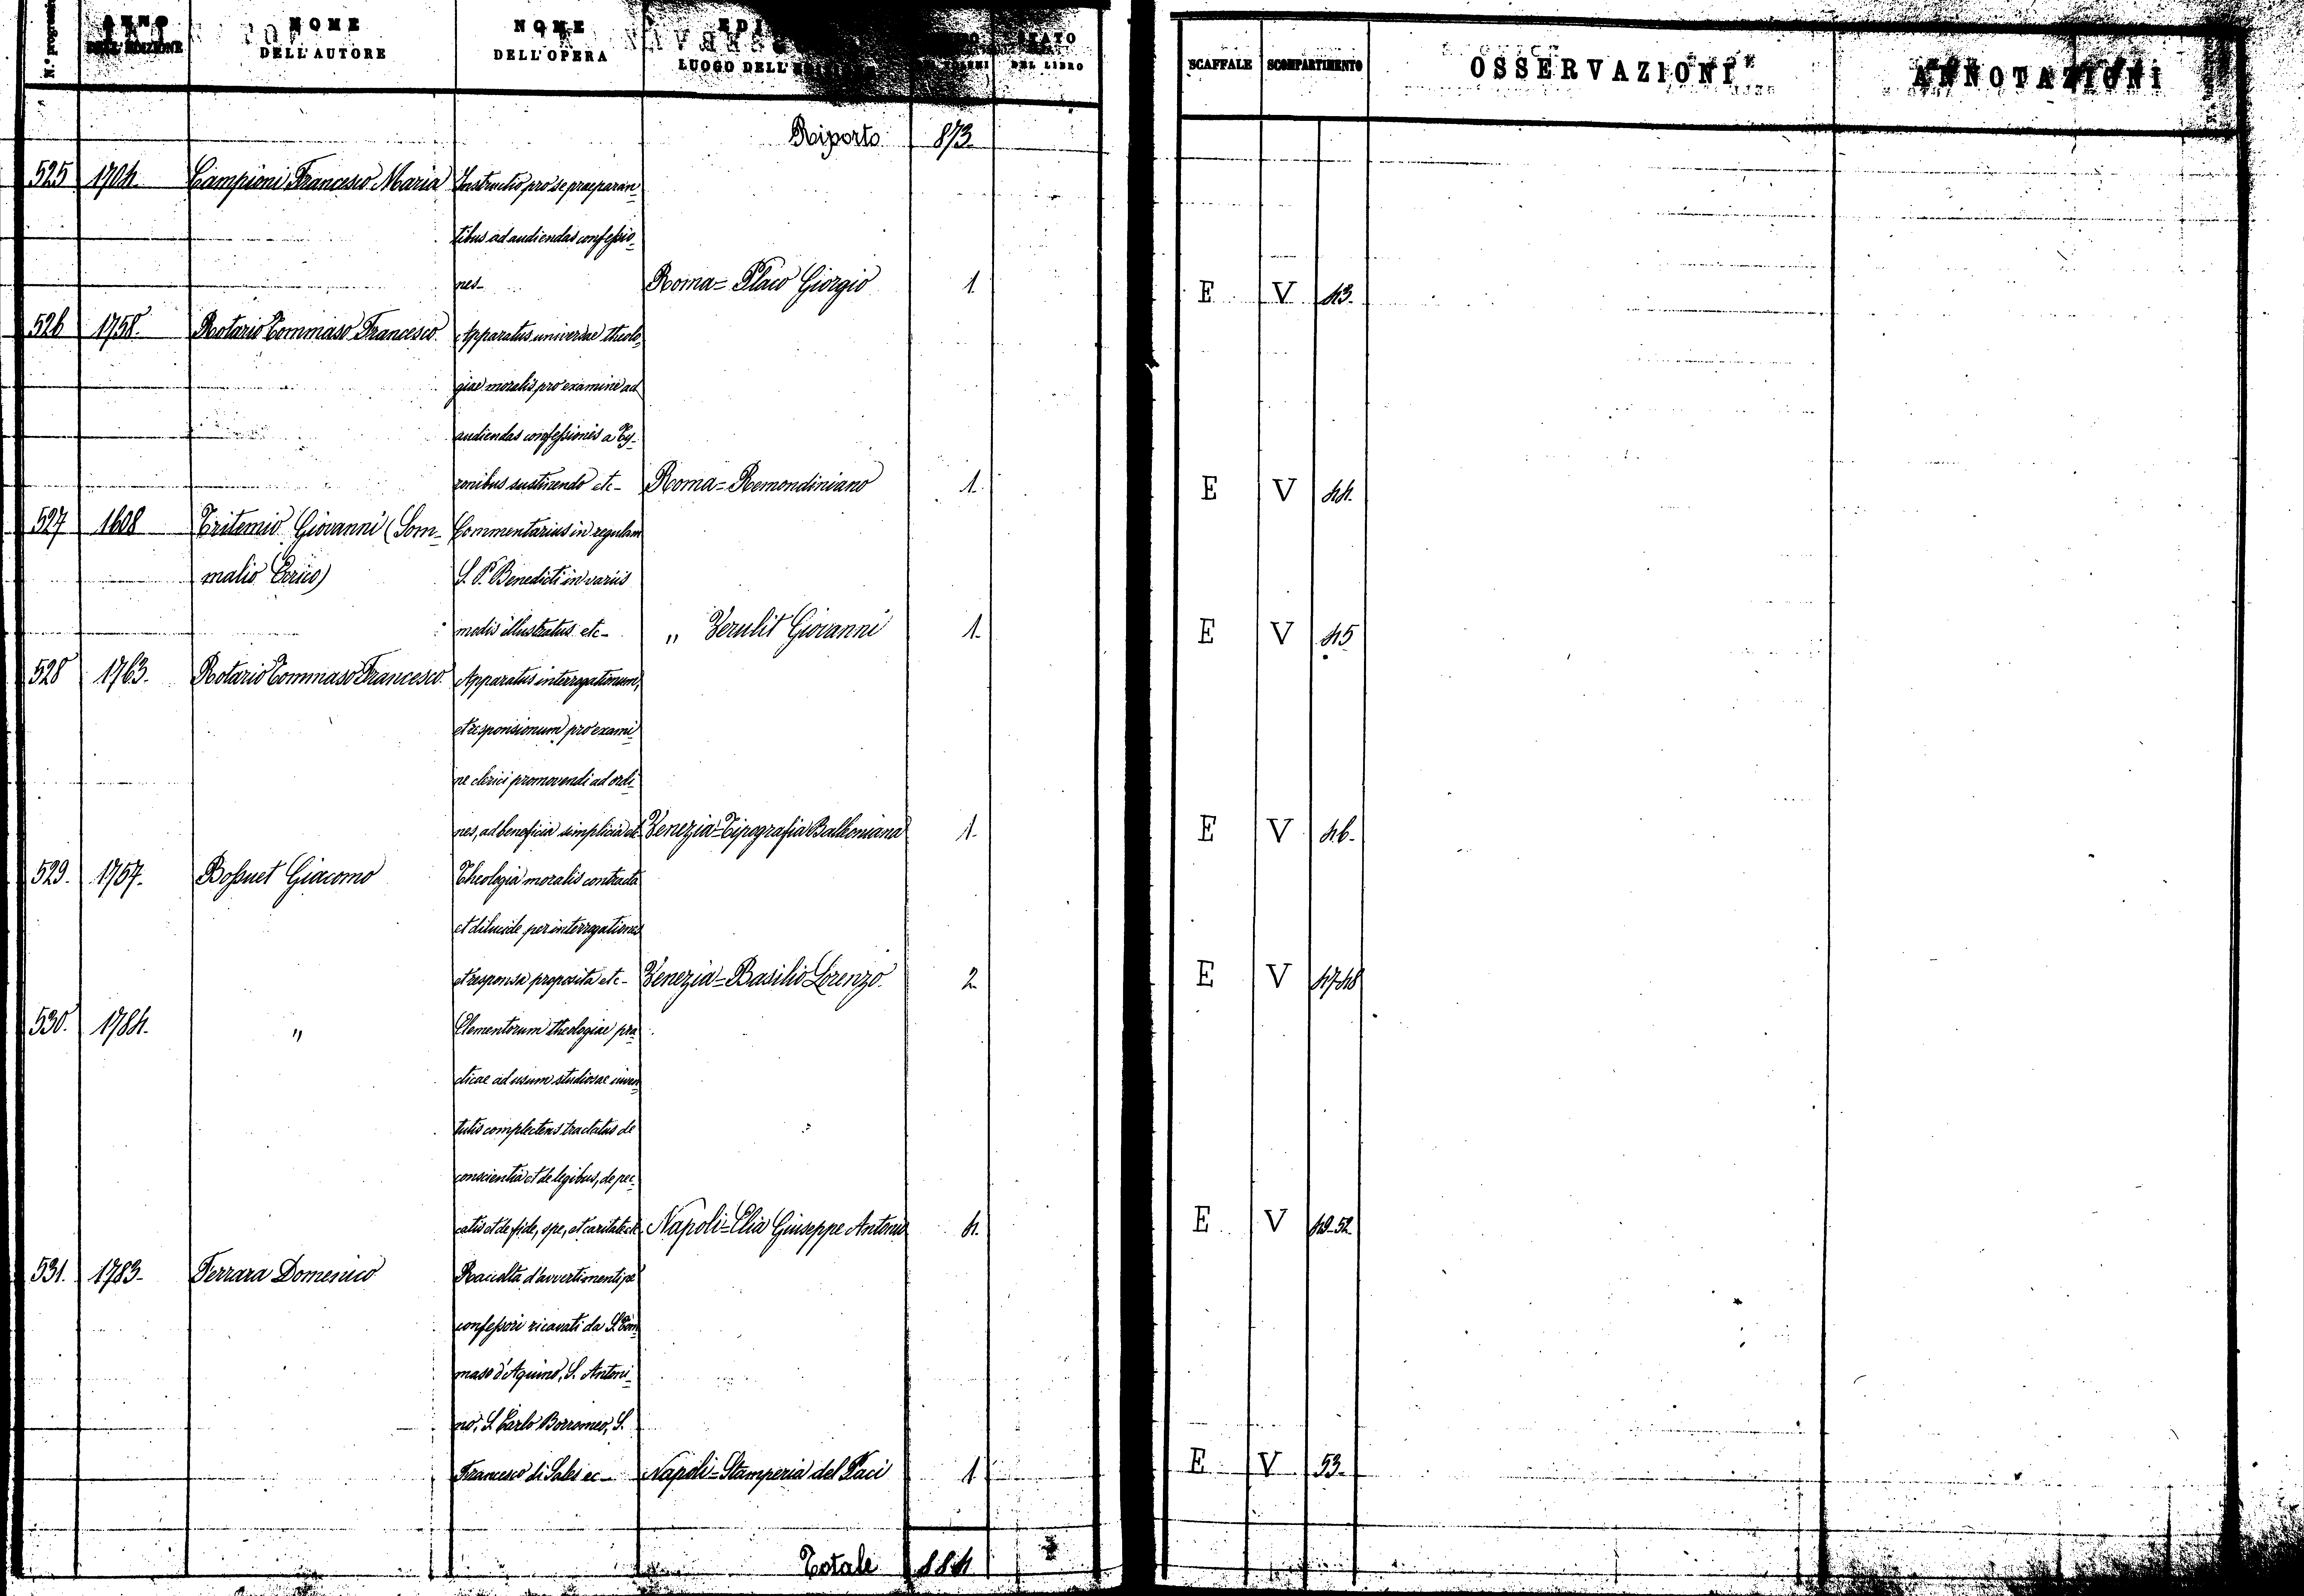 N.° progressivo ANNO DELL'EDIZIONE NOME DELL'AUTORE NOME DELL'OPERA LUOGO DELL' STATO DEL LIBRO SCAFFALE SCOMPARTIMENTO OSSERVAZIONI ANNOTAZIONI
Riporto 873
525 1704. Campioni Francesco Maria Instructio pro se praeparan-
tibus ad audiendas confessio-
nes- Roma= Placo Giorgio 1 E V 43.
526 1758. Rotario Tommaso Francesco Apparatus universae theolo-
giae moralis pro examine ad
audiendas confessiones a Ty-
ronibus sustinendo etc- Roma= Remondiniano 1. E V 44.
527 1608 Tritemio Giovanni (Som- Commentarius in regulam
malio Errico) S. P. Benedicti in variis
modis illustratus etc- " Zerulit Giovanni 1. E V 45
528 1763. Rotario Tommaso Francesco Apparatus interrogationum,
et responsionum pro exami-
ne clerici promovendi ad ordi-
nes, ad beneficia simplicia etc Venezia= Tipografia Balleoniana 1. E V 46.
529. 1757. Bossuet Giacomo Theologia moralis contracta
et dilucide per interrogationes
et responsa proposita etc- Venezia= Basilio Lorenzo. 2 E V 47-48
530. 1784. " Elementorum theologiae pra-
cticae ad usum studiosae iuven-
tutis complectens tractatus de
conscientia et de legibus, de pec-
catis et de fide, spe, et caritate etc Napoli= Elia Giuseppe Antonio 4. E V 49-52
531. 1783- Ferrara Domenico Raccolta d'avvertimenti pe'
confessori ricavati da S. Tom-
maso d'Aquino, S. Antoni-
no, S. Carlo Borromeo, S.
Francesco di Sales ec- Napoli= Stamperia del Paci 1 E V 53.
Totale 884